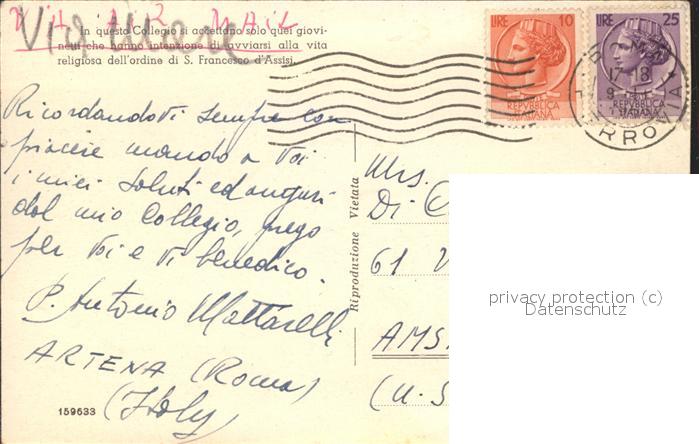 Via Aerea
AIR MAIL
In questo Collegio si accettano solo quei giovi-
netti che hanno intenzione di avviarsi alla vita
religiosa dell'ordine di S. Francesco d'Assisi.
LIRE 10
REPVBBLICA
ITALIANA
LIRE 25
REPVBBLICA
ITALIANA
ROMA
17-18
FERROVIA
Ricordandovi sempre con
piacere mando a Voi
i miei saluti ed auguri
dal mio Collegio, prego
per Voi e Vi benedico.
P. Antonio Mattarelli
ARTENA (Roma)
(Italy)
159633
Riproduzione Vietata
Mrs.
Di C
61 V
AMS
(U.S
privacy protection (c)
Datenschutz